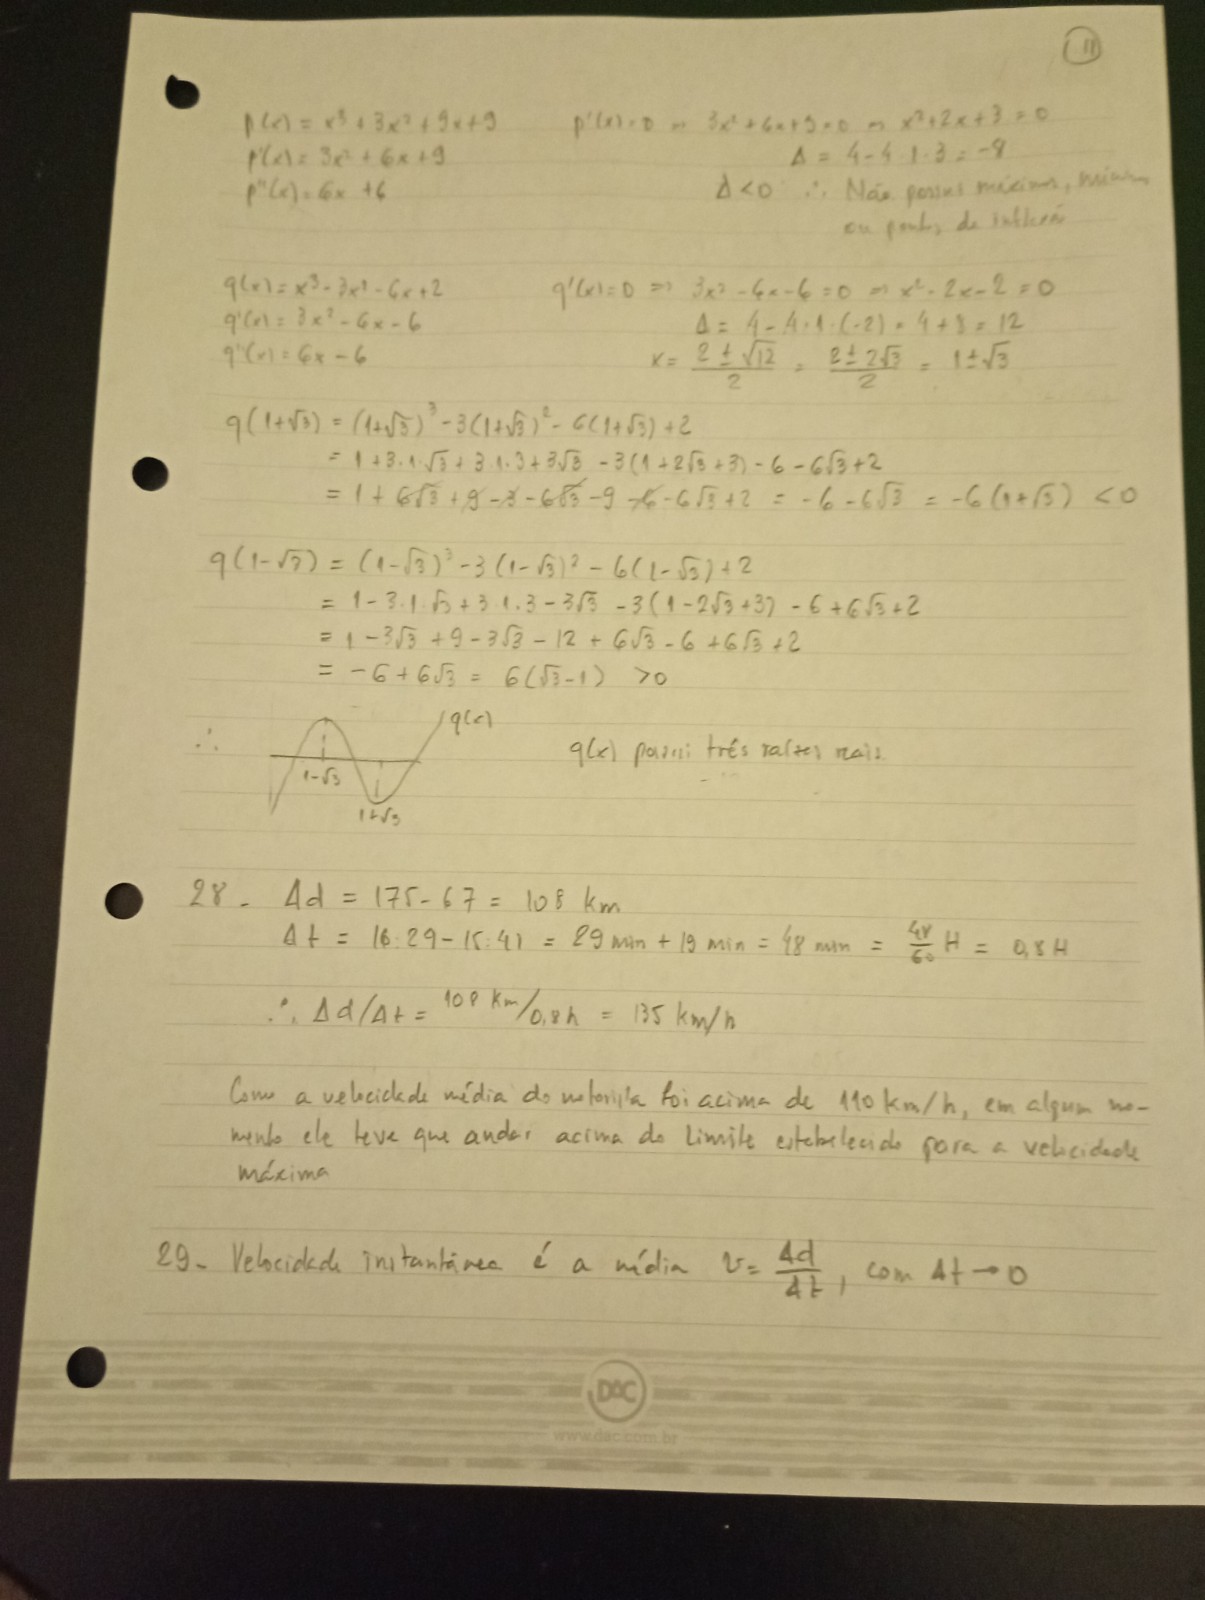 11
p(x) = x³ + 3x² + 9x + 9    p'(x) = 0 ⇒ 3x² + 6x + 9 = 0 ⇒ x² + 2x + 3 = 0
p'(x) = 3x² + 6x + 9    Δ = 4 - 4·1·3 = -8
p''(x) = 6x + 6    Δ < 0 ∴ Não possui máximos,
ou pontos de inflexão
q(x) = x³ - 3x² - 6x + 2    q'(x) = 0 ⇒ 3x² - 6x - 6 = 0 ⇒ x² - 2x - 2 = 0
q'(x) = 3x² - 6x - 6    Δ = 4 - 4·1·(-2) = 4 + 8 = 12
q''(x) = 6x - 6    x = (2 ± √12)/2 = (2 ± 2√3)/2 = 1 ± √3
q(1+√3) = (1+√3)³ - 3(1+√3)² - 6(1+√3) + 2
= 1 + 3·1·√3 + 3·1·3 + 3√3 - 3(1 + 2√3 + 3) - 6 - 6√3 + 2
= 1 + 6√3 + 9 - 3 - 6√3 - 9 - 6 - 6√3 + 2 = -6 - 6√3 = -6(1+√3) < 0
q(1-√3) = (1-√3)³ - 3(1-√3)² - 6(1-√3) + 2
= 1 - 3·1·√3 + 3·1·3 - 3√3 - 3(1 - 2√3 + 3) - 6 + 6√3 + 2
= 1 - 3√3 + 9 - 3√3 - 12 + 6√3 - 6 + 6√3 + 2
= -6 + 6√3 = 6(√3 - 1) > 0
∴ q(x)    q(x) possui três raízes reais.
1-√3
1+√3
28 - Δd = 175 - 67 = 108 km
Δt = 16:29 - 15:41 = 29 min + 19 min = 48 min = 48/60 H = 0,8 H
∴ Δd/Δt = 108 km/0,8h = 135 km/h
Como a velocidade média do motorista foi acima de 110 km/h, em algum mo-
mento ele teve que andar acima do limite estabelecido para a velocidade
máxima
29 - Velocidade instantânea é a média v = Δd/Δt, com Δt → 0
DAC
www.dac.com.br